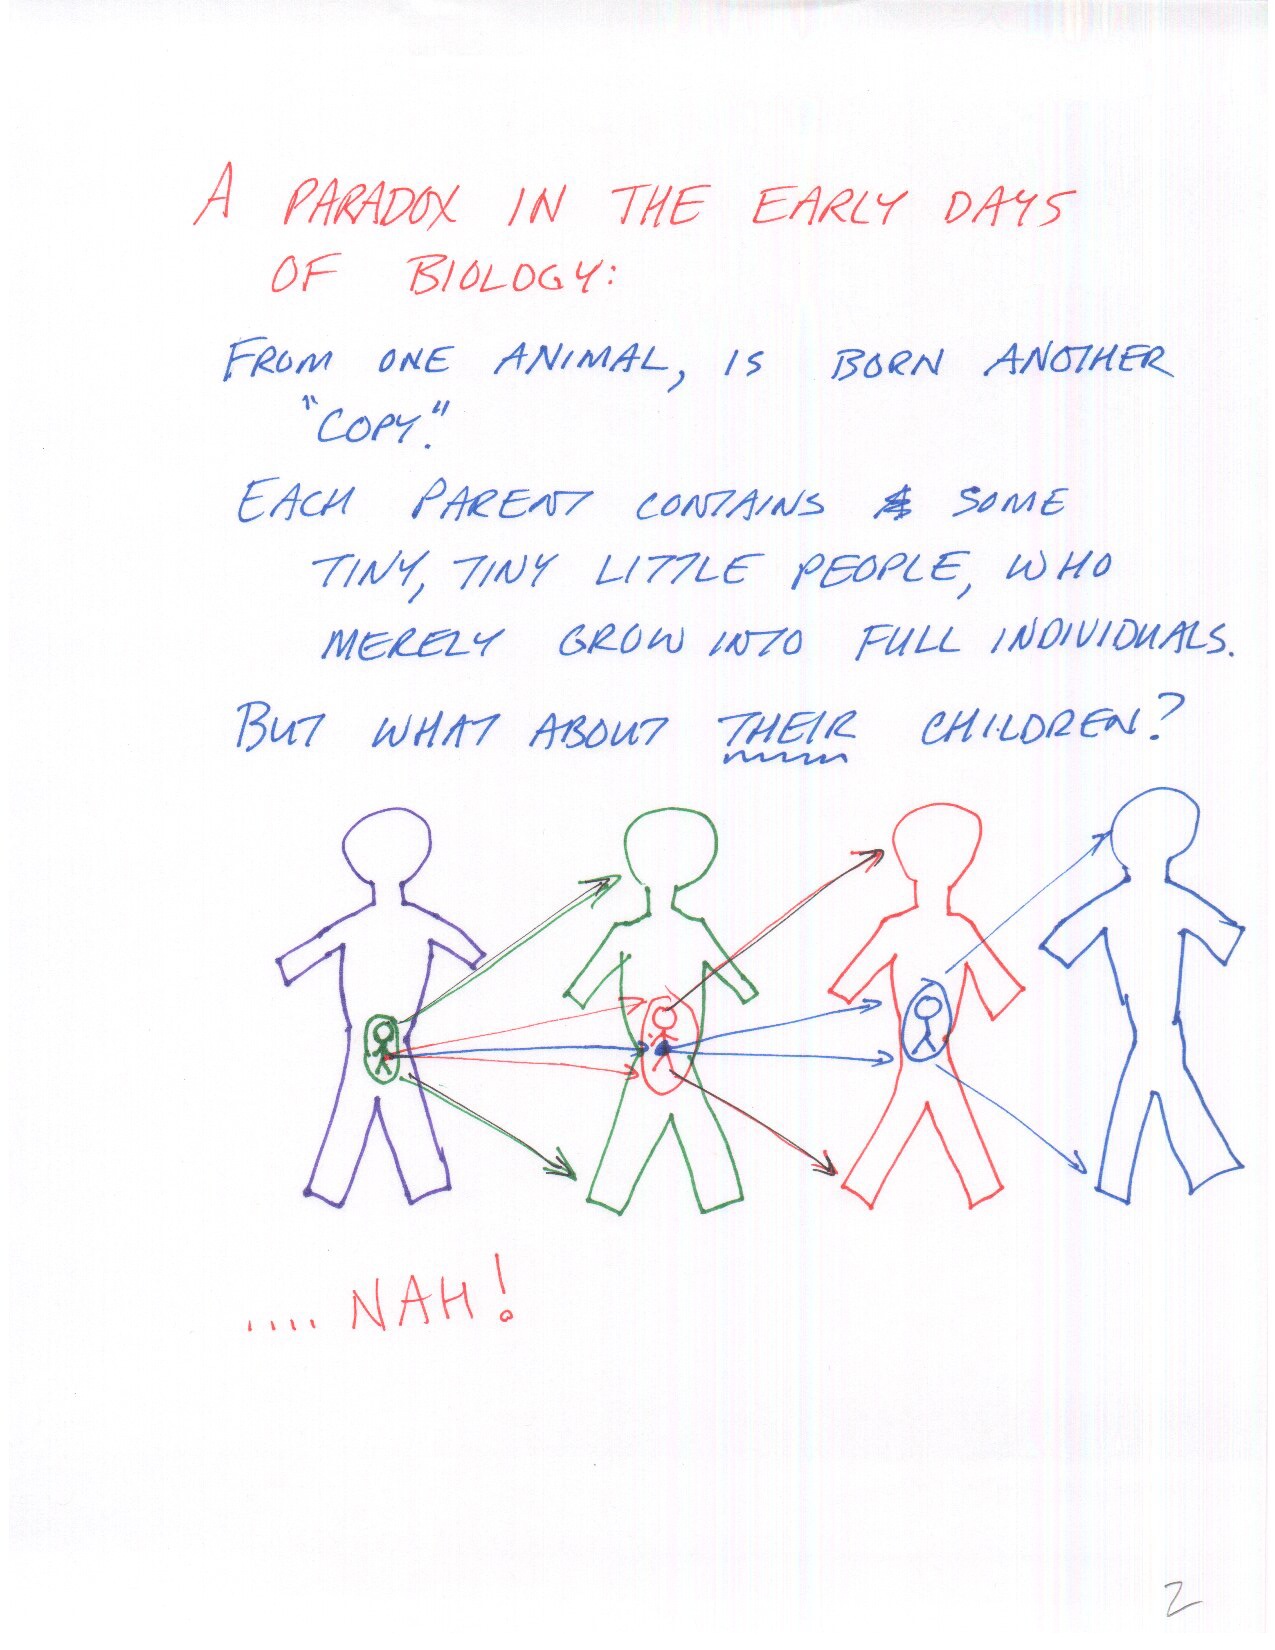 A PARADOX IN THE EARLY DAYS
OF BIOLOGY:
FROM ONE ANIMAL, IS BORN ANOTHER
"COPY."
EACH PARENT CONTAINS SOME
TINY, TINY LITTLE PEOPLE, WHO
MERELY GROW INTO FULL INDIVIDUALS.
BUT WHAT ABOUT THEIR CHILDREN?
.... NAH!
2